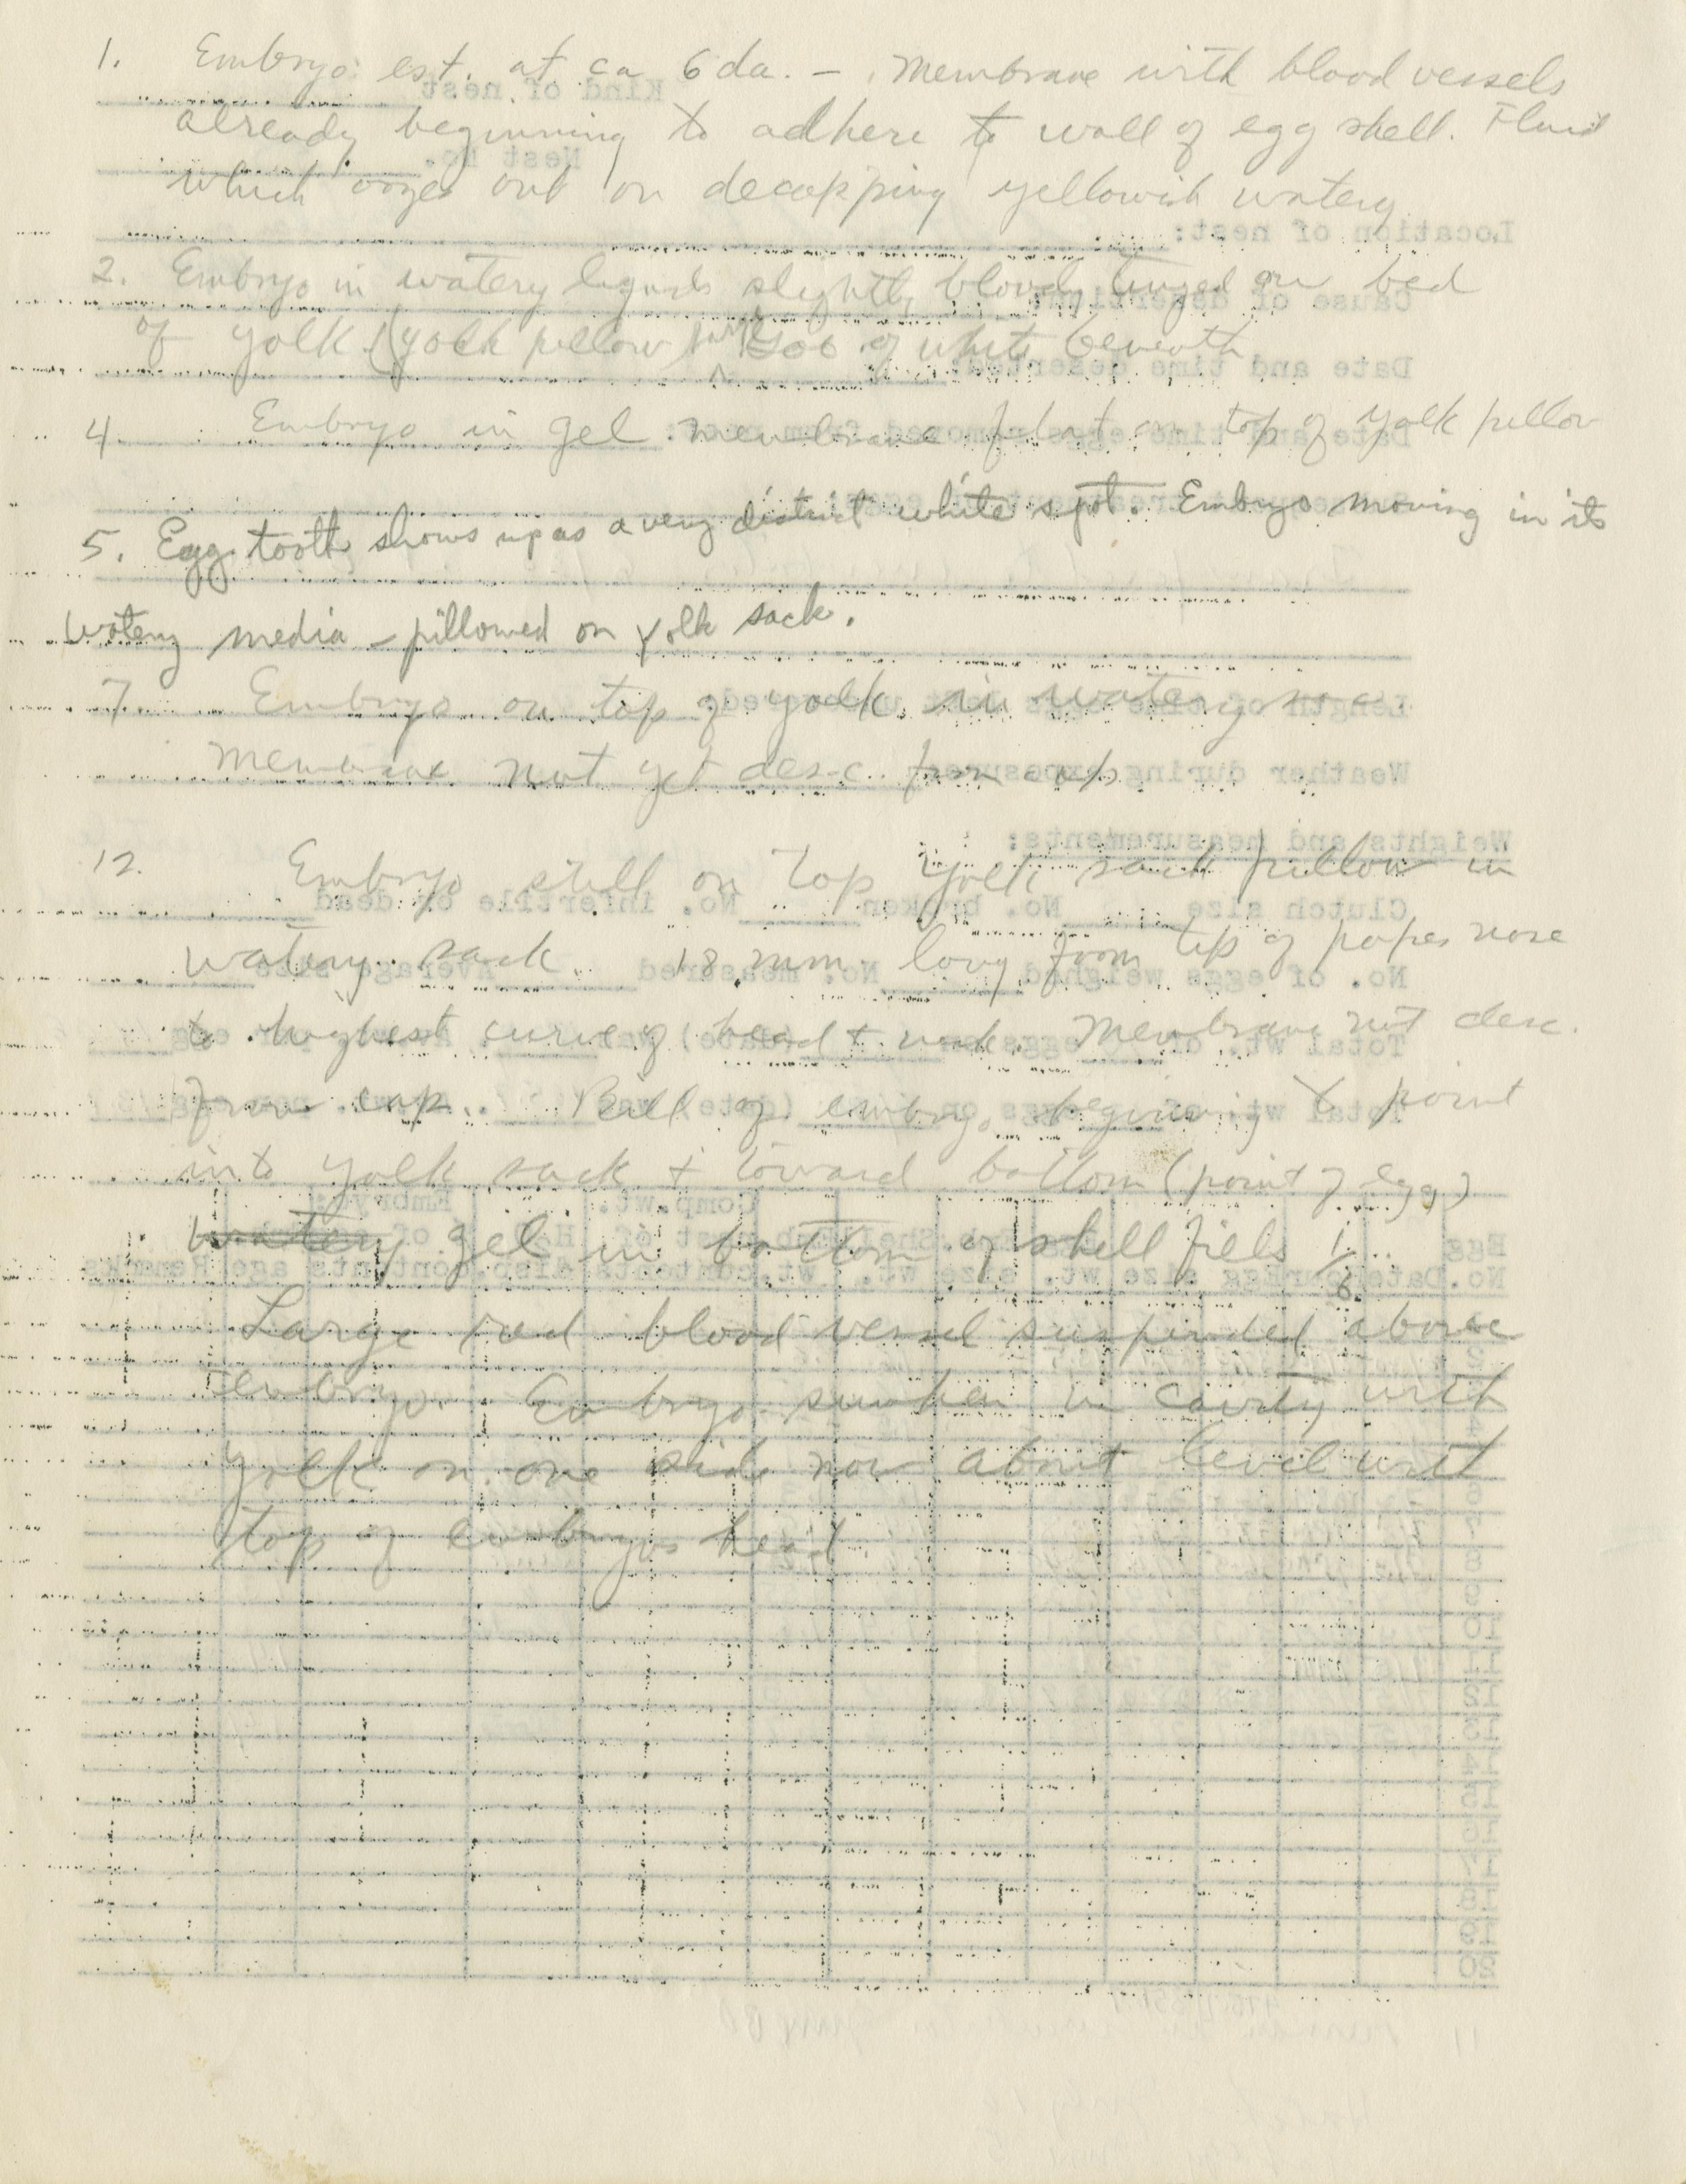 1. Embryo est. at ca 6 da. – Membrane with blood vessels
already beginning to adhere to wall of egg shell. Fluid
which oozes out on decapping yellowish watery
2. Embryo in watery liquid slightly bloody tinged on bed
of yolk (yolk pillow) goo of white beneath
4. Embryo in gel membrane flat on top of yolk pillow
5. Egg tooth shows up as a very distinct white spot. Embryo moving in its
watery media – pillowed on yolk sack.
7. Embryo on top of yolk in watery sac
membrane not yet desc. from cap
12. Embryo still on top yolk sack pillow in
watery sack 18 mm long from tip of popes nose
to highest curve of head & neck. Membrane not desc.
from cap. Bill of embryo beginning to point
into yolk sack & toward bottom (point of egg)
watery gel in bottom of shell fills 1/8.
Large red blood vessel suspended above
embryo. Embryo sunken in cavity with
yolk on one side now about level with
top of embryos head